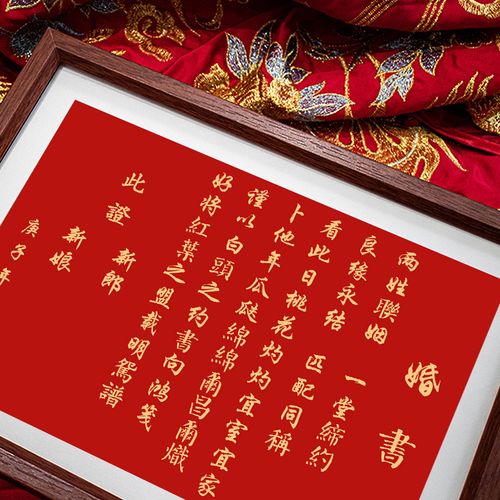 婚書
兩姓聯姻 一堂締約
良緣永結 匹配同稱
看此日桃花灼灼宜室宜家
卜他年瓜瓞綿綿爾昌爾熾
謹以白頭之約書向鴻箋
好將紅葉之盟載明鴛譜
此證 新郎
新娘
庚子年